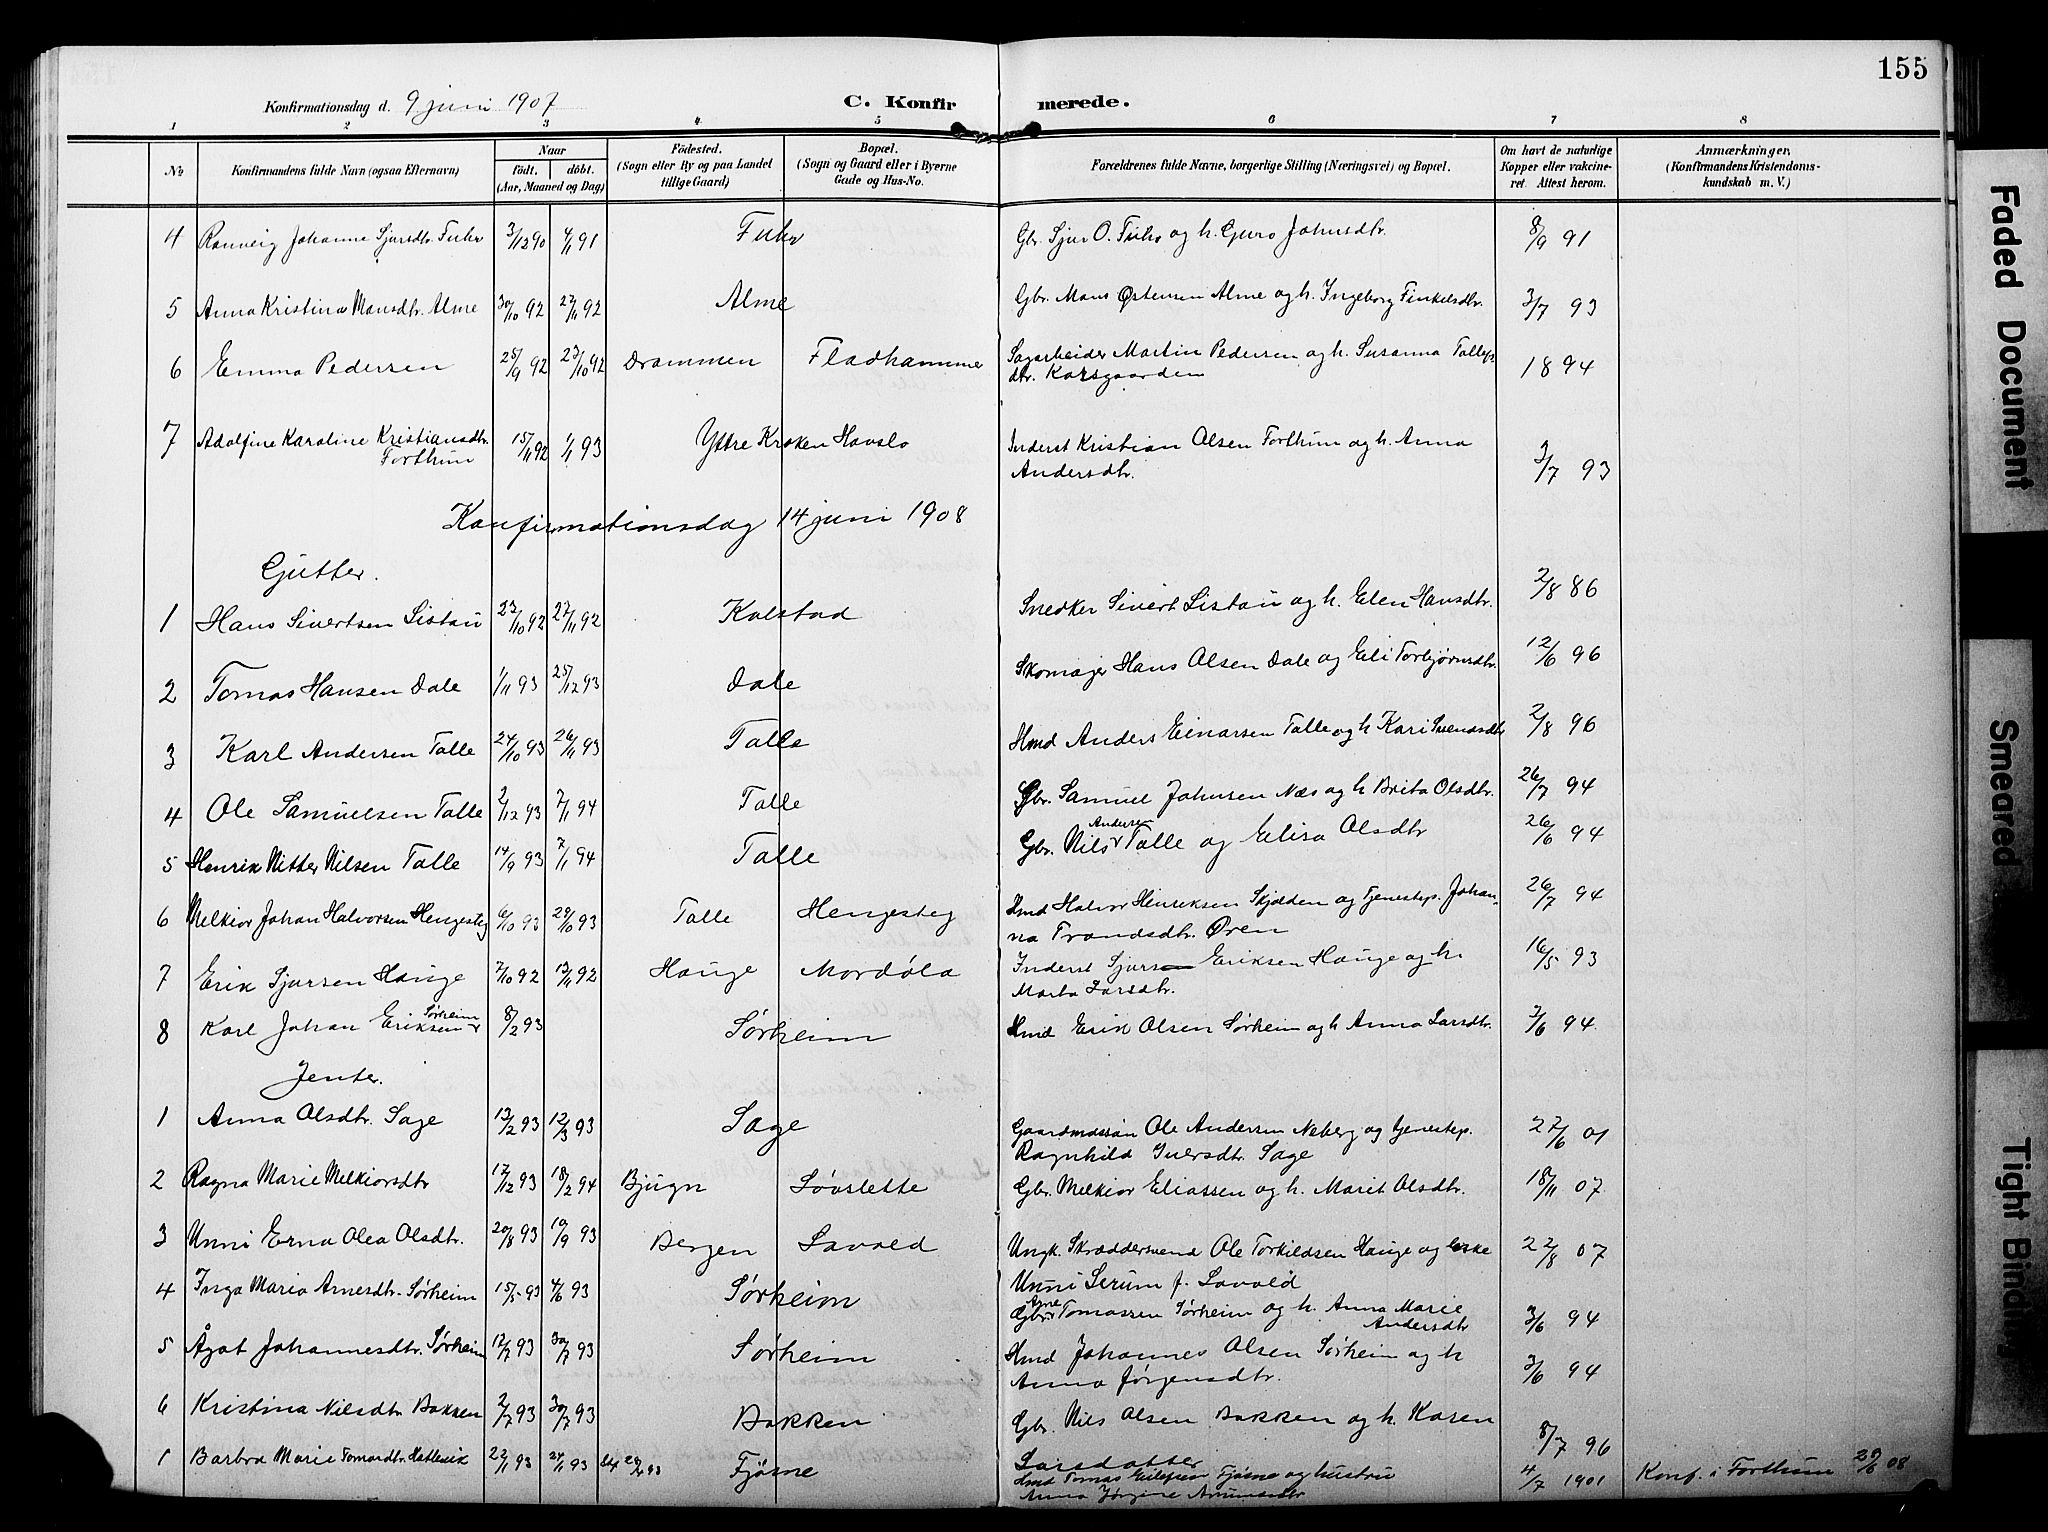 155
Konfirmationsdag d. 9 juni 1907 C. Konfirmerede.
1 2 3 4 5 6 7 8
No Konfirmandens fulde Navn (ogsaa Efternavn) Naar født. døbt. (Aar, Maaned og Dag) Fødested. (Sogn eller By og paa Landet tillige Gaard) Bopæl. (Sogn og Gaard eller i Byerne Gade og Hus-No. Forældrenes fulde Navne, borgerlige Stilling (Næringsvei) og Bopæl. Om havt de naturlige Kopper eller vakcineret. Attest herom. Anmærkninger, (Konfirmandens Kristendomskundskab m. V.)
4 Ranveig Johanne Sjursdtr. Fuhr 3/12 90 4/1 91 Fuhr Gbr. Sjur O. Fuhr og h. Guro Johnsdtr. 8/9 91
5 Anna Kristina Monsdtr. Alme 30/10 92 27/11 92 Alme Gbr. Mons Østensen Alme og h. Ingeborg Finkelsdtr. 3/7 93
6 Emma Pedersen 25/9 92 23/10 92 Drammen Fladhammer Sagarbeider Martin Pedersen og h. Susanna Tollefs
dtr. Korsgaarden 18 94
7 Adolfine Karoline Kristiansdtr. 15/11 92 1/1 93 Yttre Kroken Hafslo Inderst Kristian Olsen Forthun og h. Anna
Forthun Andersdtr. 3/7 93
Konfirmationsdag 14 juni 1908
Gjutter.
1 Hans Sivertsen Listau 23/10 92 27/11 92 Kolstad Snedker Sivert Listau og h. Elen Hansdtr. 2/8 86
2 Tomas Hansen Dale 1/11 93 25/12 93 Dale Skomager Hans Olsen Dale og Eli Torbjørnsdtr. 12/6 96
3 Karl Andersen Talle 24/10 93 26/11 93 Talle Hmd Anders Einarsen Talle og h Kari Svensdtr 2/8 96
4 Ole Samuelsen Talle 2/12 93 7/1 94 Talle Gbr. Samuel Johnsen Næs og h Brita Olsdtr. 26/7 94
5 Henrik Nitter Nilsen Talle 14/9 93 7/1 94 Talle Gbr. Nils Andersen Talle og Elisa Olsdtr 26/6 94
6 Melkior Johan Halvorsen Hengesteg 6/10 93 29/10 93 Talle Hengesteg Hmd Halvor Henriksen Skjolden og Tjenestep. Johan-
na Trondsdtr. Øren 26/7 94
7 Erik Sjursen Hauge 7/10 92 13/11 92 Hauge Mordøla Inderst Sjur Eriksen Hauge og h.
Marta Larsdtr. 16/5 93
8 Karl Johan Eriksen Sørheim 8/2 93 Sørheim Hmd Erik Olsen Sørheim og h Anna Larsdtr. 3/6 94
Jenter.
1 Anna Olsdtr. Sage 13/2 93 12/3 93 Sage Gaardmandssøn Ole Andersen Neberg og tjenestep.
Ragnhild Iversdtr. Sage 27/6 01
2 Ragna Marie Melkiorsdtr 17/12 93 18/2 94 Bjugn Søvslette Gbr. Melkior Eliassen og h. Marit Olsdtr. 18/11 07
3 Unni Erna Olea Olsdtr. 20/8 93 10/9 93 Bergen Savold Ungk. Skræddersvend Ole Torkildsen Hauge og enke
Unni Serum f. Savold 22/8 07
4 Inga Maria Arnesdtr. Sørheim 15/5 93 4/6 93 Sørheim Gbr. Arne Tomassen Sørheim og h. Anna Marie
Andersdtr 3/6 94
5 Ågot Johannesdtr. Sørheim 12/7 93 30/7 93 Sørheim Hmd Johannes Olsen Sørheim og h
Anna Jørgensdtr. 3/6 94
6 Kristina Nilsdtr Bakken 2/7 93 30/7 93 Bakken Gbr. Nils Olsen Bakken og h. Karen
Larsdatter 8/7 96
1 Barbra Marie Tomasdtr. Hatlevik 22/1 93 24/1 93 Fjøsne Hmd Tomas Fjøsne og hustru
Anna Jørgine 4/7 1901 Konf. i Forthun 28/6 08
Faded Document
Smeared
Tight Binding